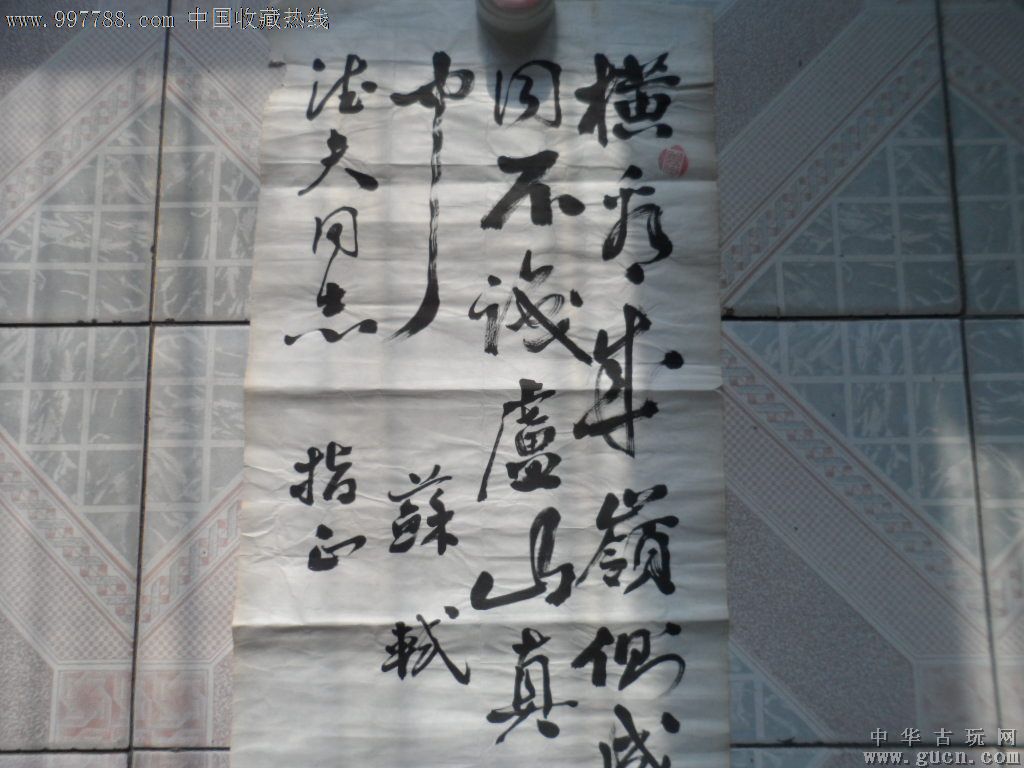 www.997788.com 中国收藏热线
橫看成嶺側成
同不識盧山真
中 蘇軾
德夫同志 指正
中华古玩网
www.gucn.com